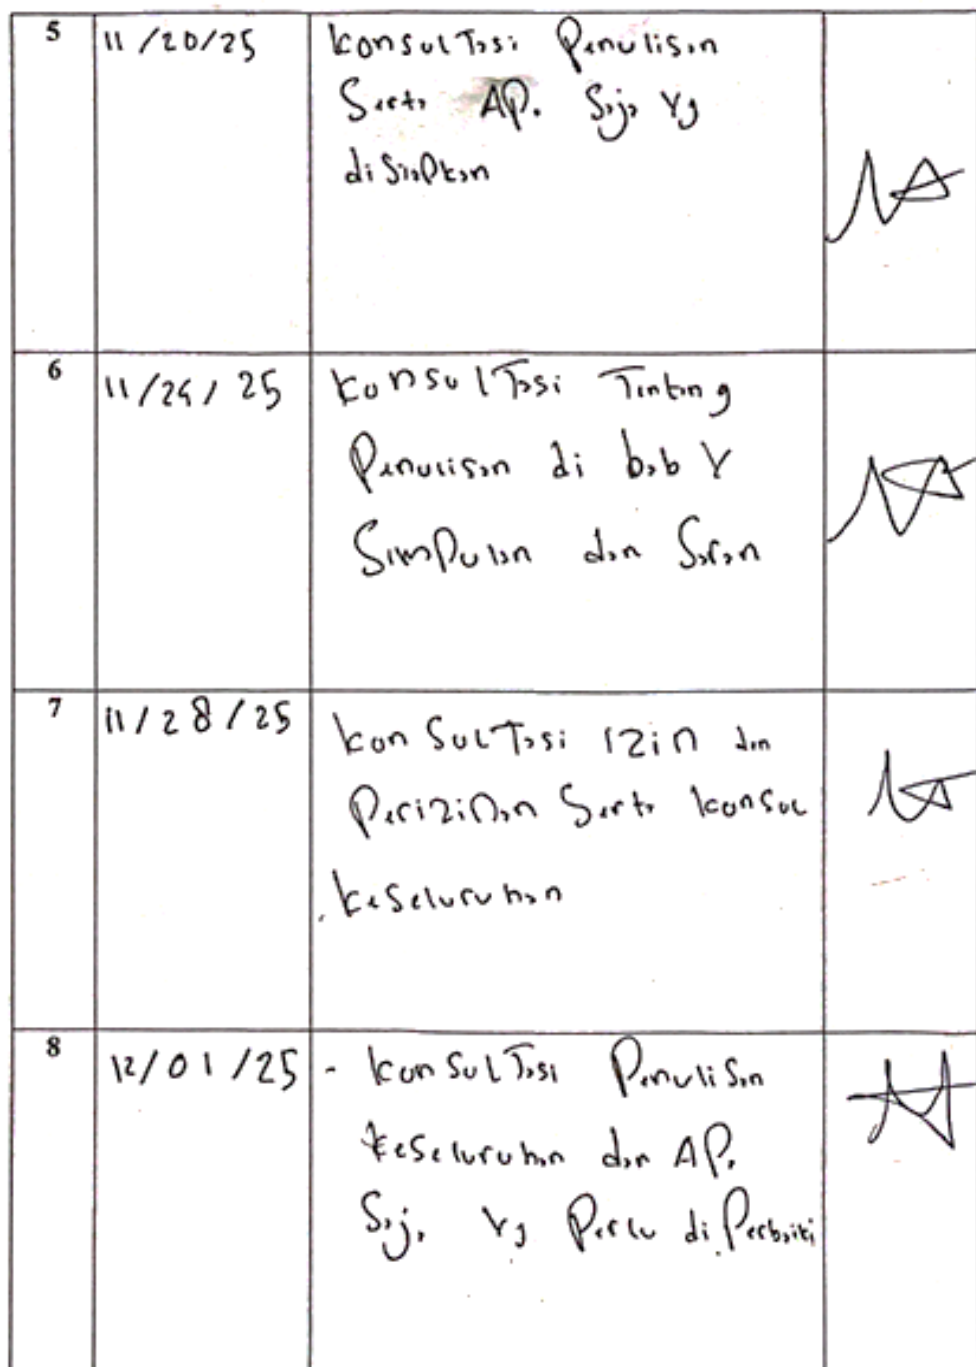 5
11/20/25
Konsultasi Penulisan
Serta AP. Saja Yg
disiapkan
6
11/25/25
Konsultasi Tentang
Penulisan di bab V
Simpulan dan Saran
7
11/28/25
Konsultasi izin dan
Perizinan Serta konsul
keseluruhan
8
12/01/25
- Konsultasi Penulisan
keseluruhan dan AP.
Saja Yg Perlu diPerbaiki